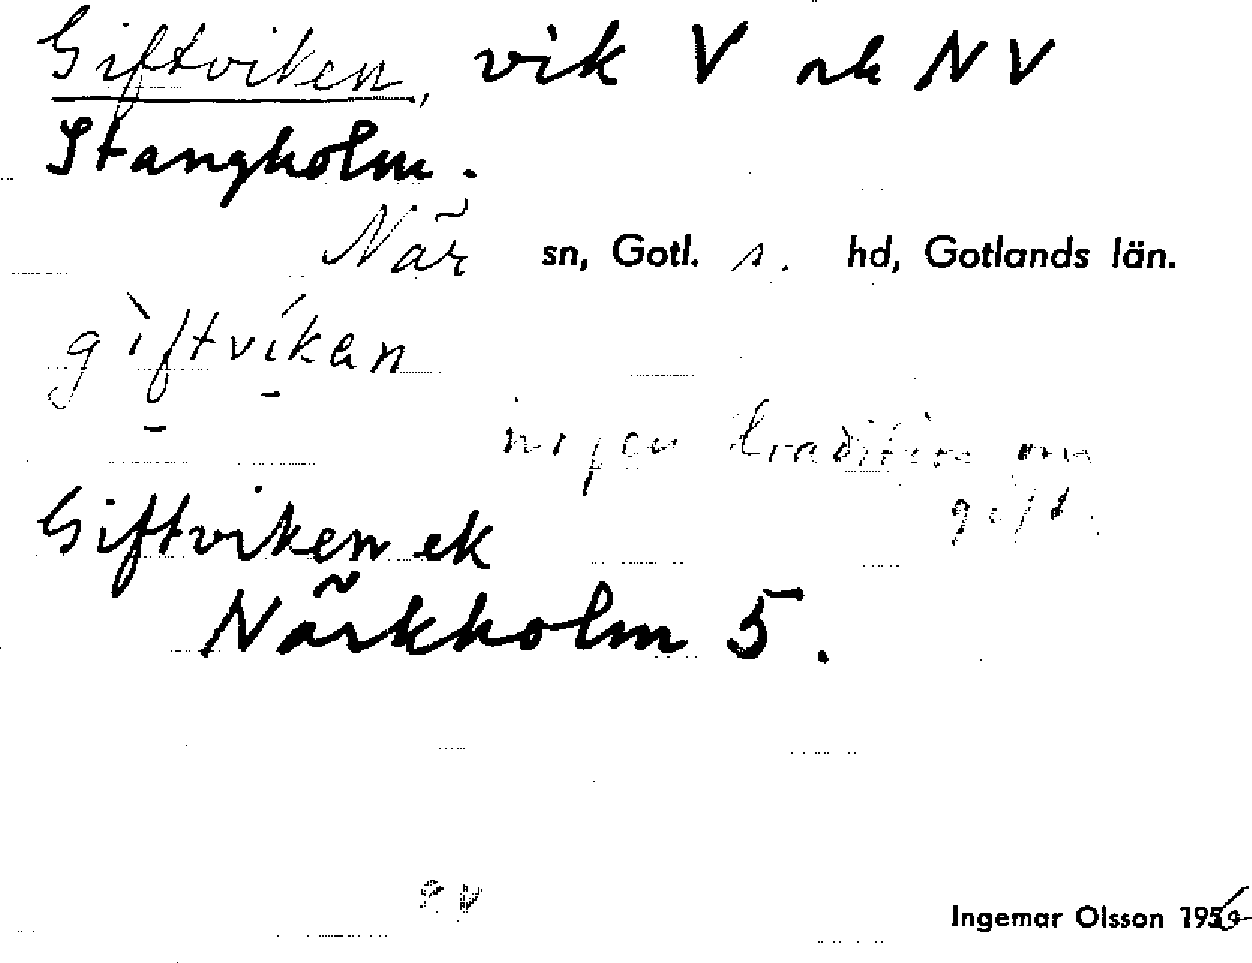 Giftviken, vik V och NV
Stangholm.
När sn, Gotl. s. hd, Gotlands län.
gìftvíkan
ingen tradition om
gift.
Giftviken ek
Närkholm 5.
Ingemar Olsson 1956